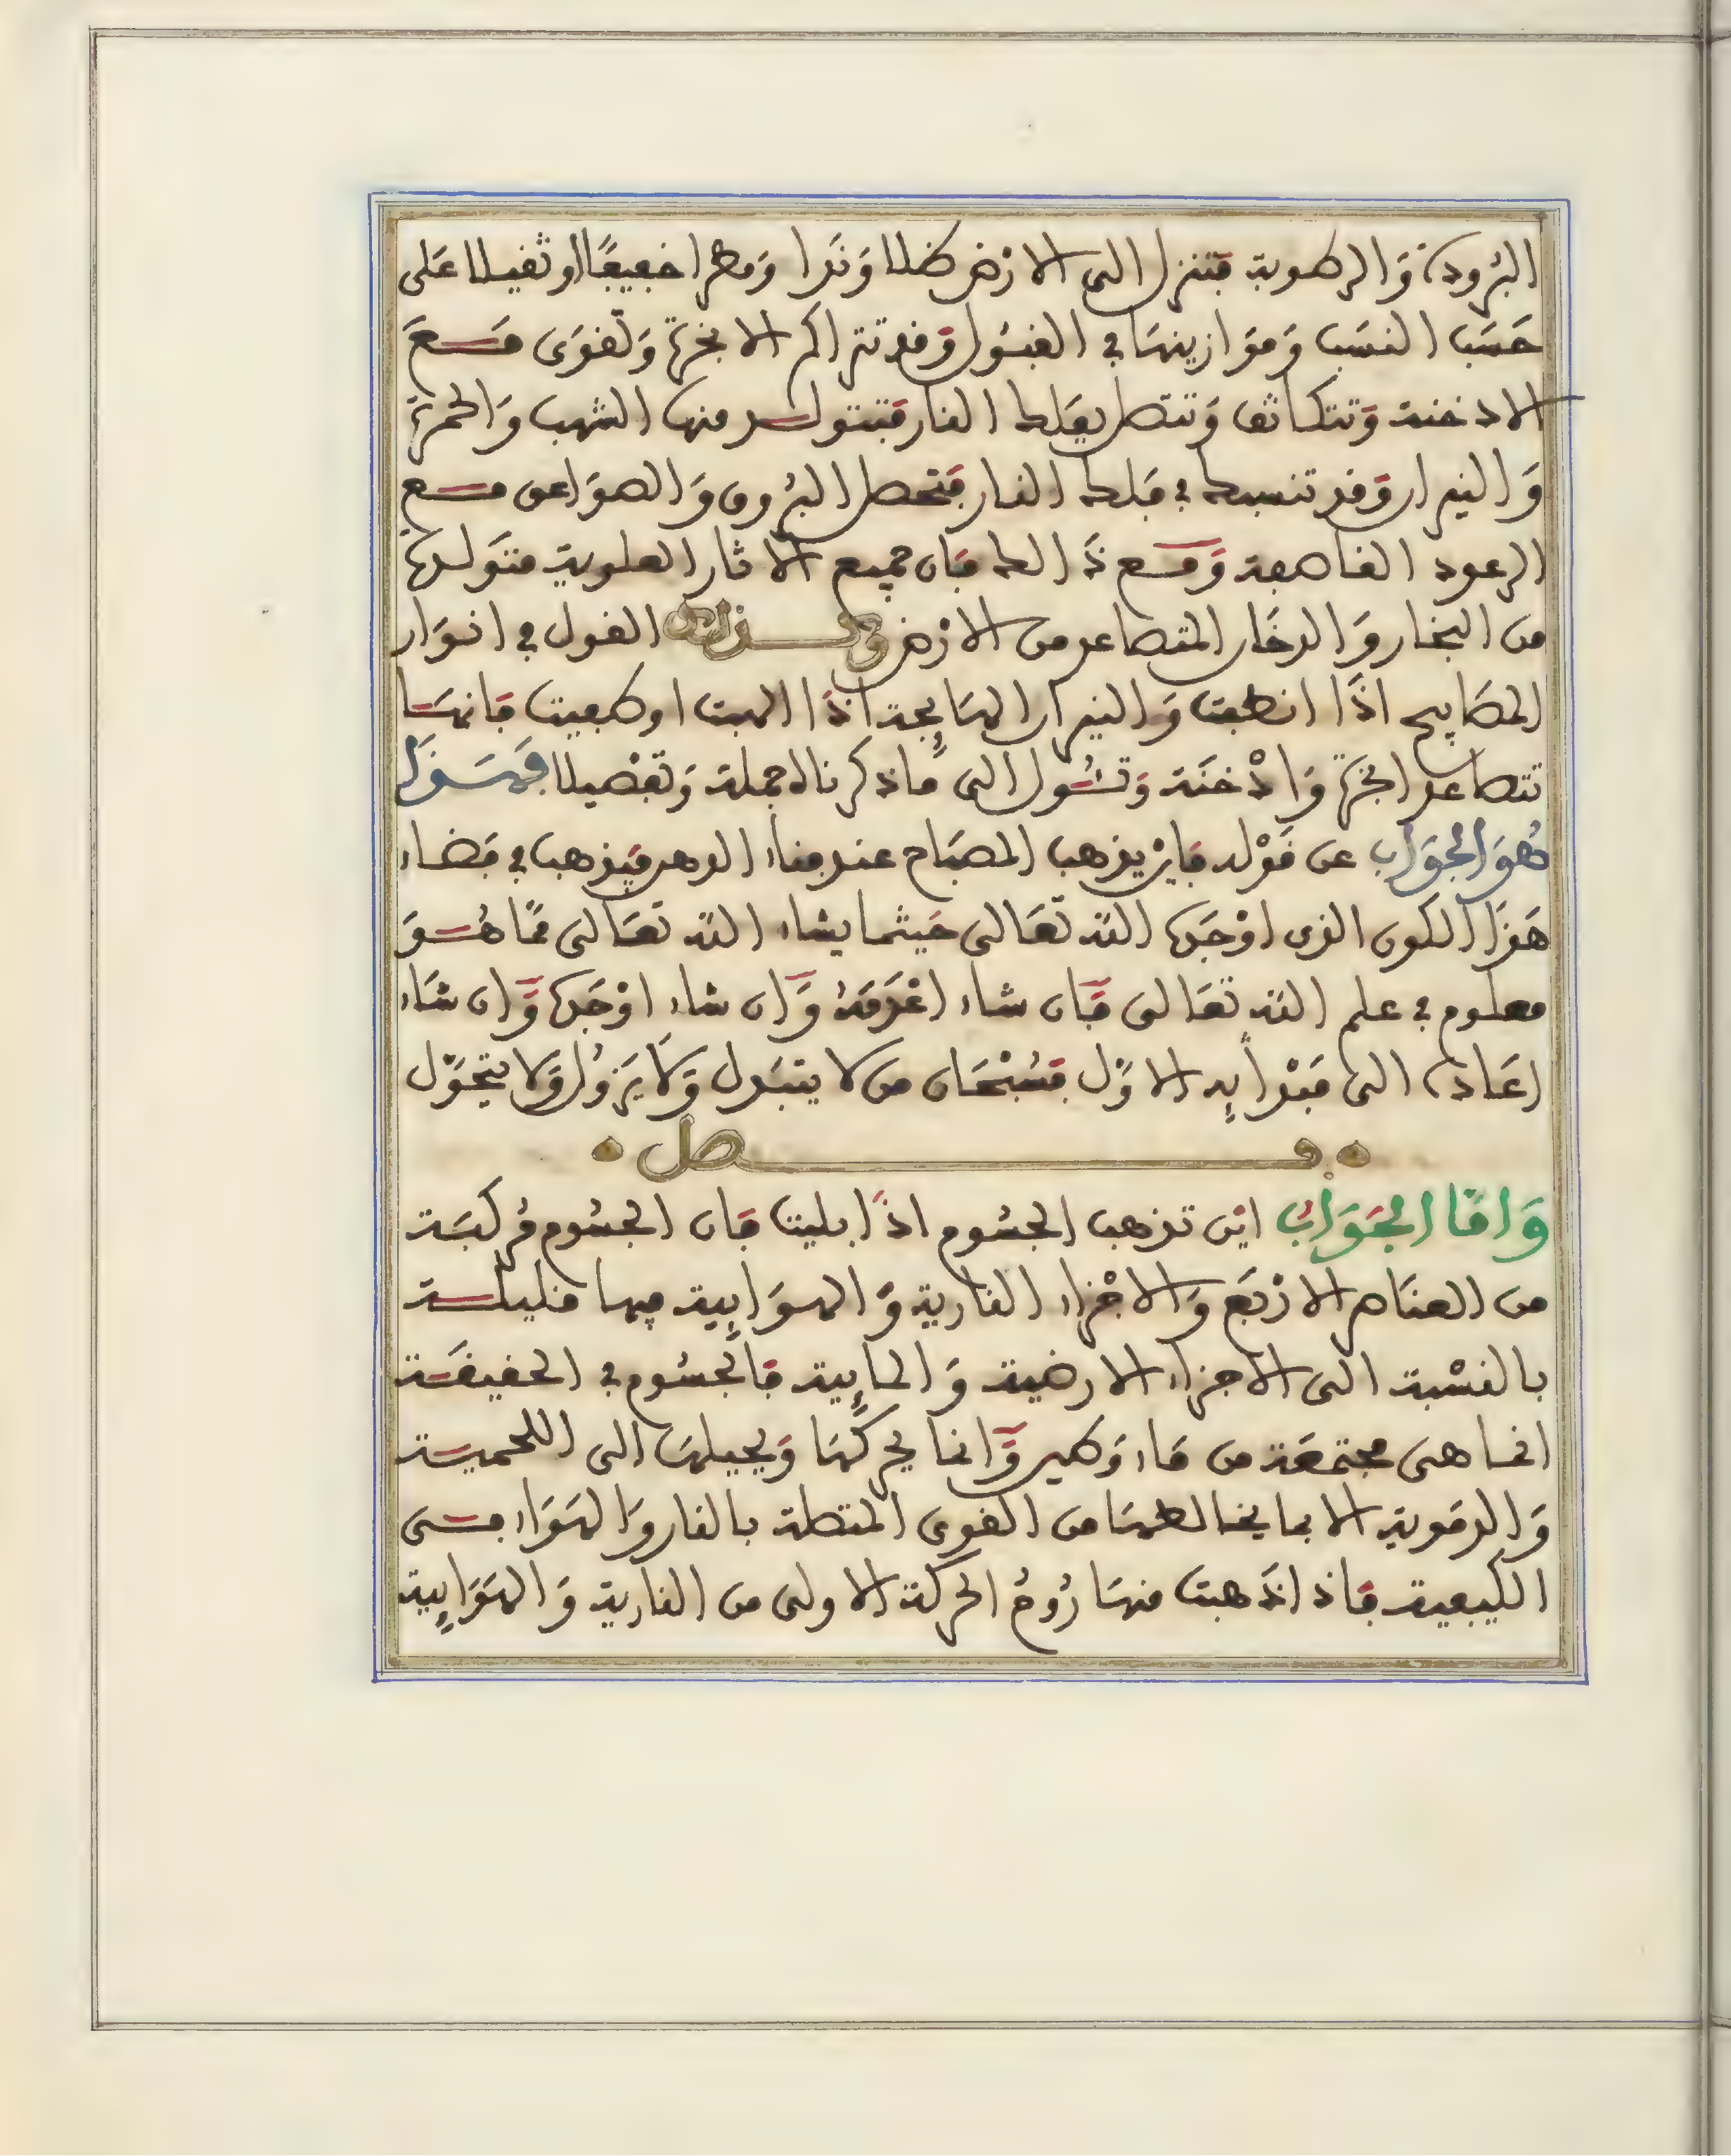 البرودة وَالرطوبة فتنزل الى الارْض طلا وَندَا وَمطرا خفيفًا او ثقيلا عَلى
حَسَب النسَب وَمَوَازينهَا في الفصُول وَقد تتراكم الابخرة وَتقوَى مَع
الادخنة وَتتكاثف وَتتصل بفَلك النار فتتولد منها الشهب وَالحمرة
وَالنيران وَقد تنبسط في فلك النار فتحصل البرُوق وَالصوَاعق مع
الرعود القاصفة وَمع ذَالك فَان جميع الاثار العلوية متوَلدها
من البخار وَالدخَان المتصاعد من الارْض وكذالك القول في انوَار
المصَابيح اذَا انطفت وَالنيران الهَايِجة اذَا الهبت او طفيت فانهَا
تتصاعد ابخرة وَادْخنَة وَتئُول الى مَا ذكرناه جملة وَتفصيلا فهَذَا
هُوَ الجوَاب عن قوْله فايْن يذهب المصبَاح عند فناء الدهر فيَذهب في فضاء
هَذا الكون الذى اوْجَدَه اللّه تعَالى حَيثما يشاء اللّه تعَالى ممَّا هُوَ
معلوم في علم اللّه تعَالى فَان شاء اعْدَمَهُ وَان شاء اوْجَدَه وَان شَاء
اعَاده الى مَبْدَأيِه الاوَّل فسُبْحَان من لا يتبدل وَلَا يَزُولُ وَلَا يتحَوَّل
فصل
وَامَّا الجَوَابُ ايْن تذهب الجسُوم اذَا بليت فَان الجسُوم مُركبَة
من العنَاصر الارْبَع وَالاجْزاء النارية وَالهوَايِية فيها قليلة
بالنسْبة الى الاجزاء الارضية وَالمايِية فَالجسُوم في الحقيقَة
انما هى مجتمعَة من مَاء وَطين وَانما يحركهَا وَيحيلهَا الى اللحمية
وَالدموية الا بما يخالطهَا من القوى المتصلة بالنار وَالهَوَاء فـى
الكيفية فَاذا ذَهبت منهَا رُوحُ الحركة الاولى من النارية وَالهَوَايِية